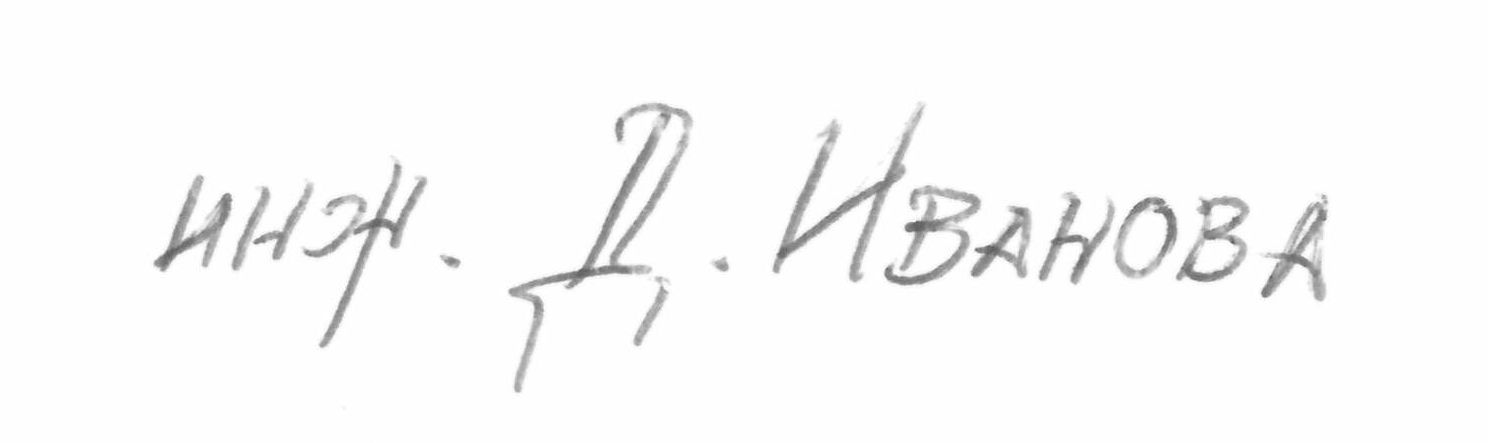 инж. Д. Иванова